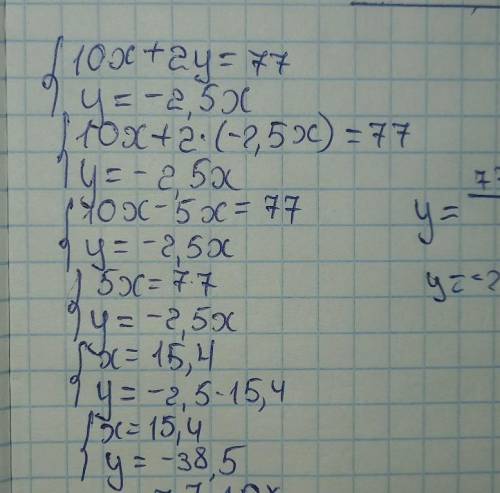 10x + 2y = 77
y = -2,5x
10x + 2·(-2,5x) = 77
y = -2,5x
10x - 5x = 77
y = -2,5x
5x = 7·7
y = -2,5x
x = 15,4
y = -2,5·15,4
x = 15,4
y = -38,5
y = 77
y = -2